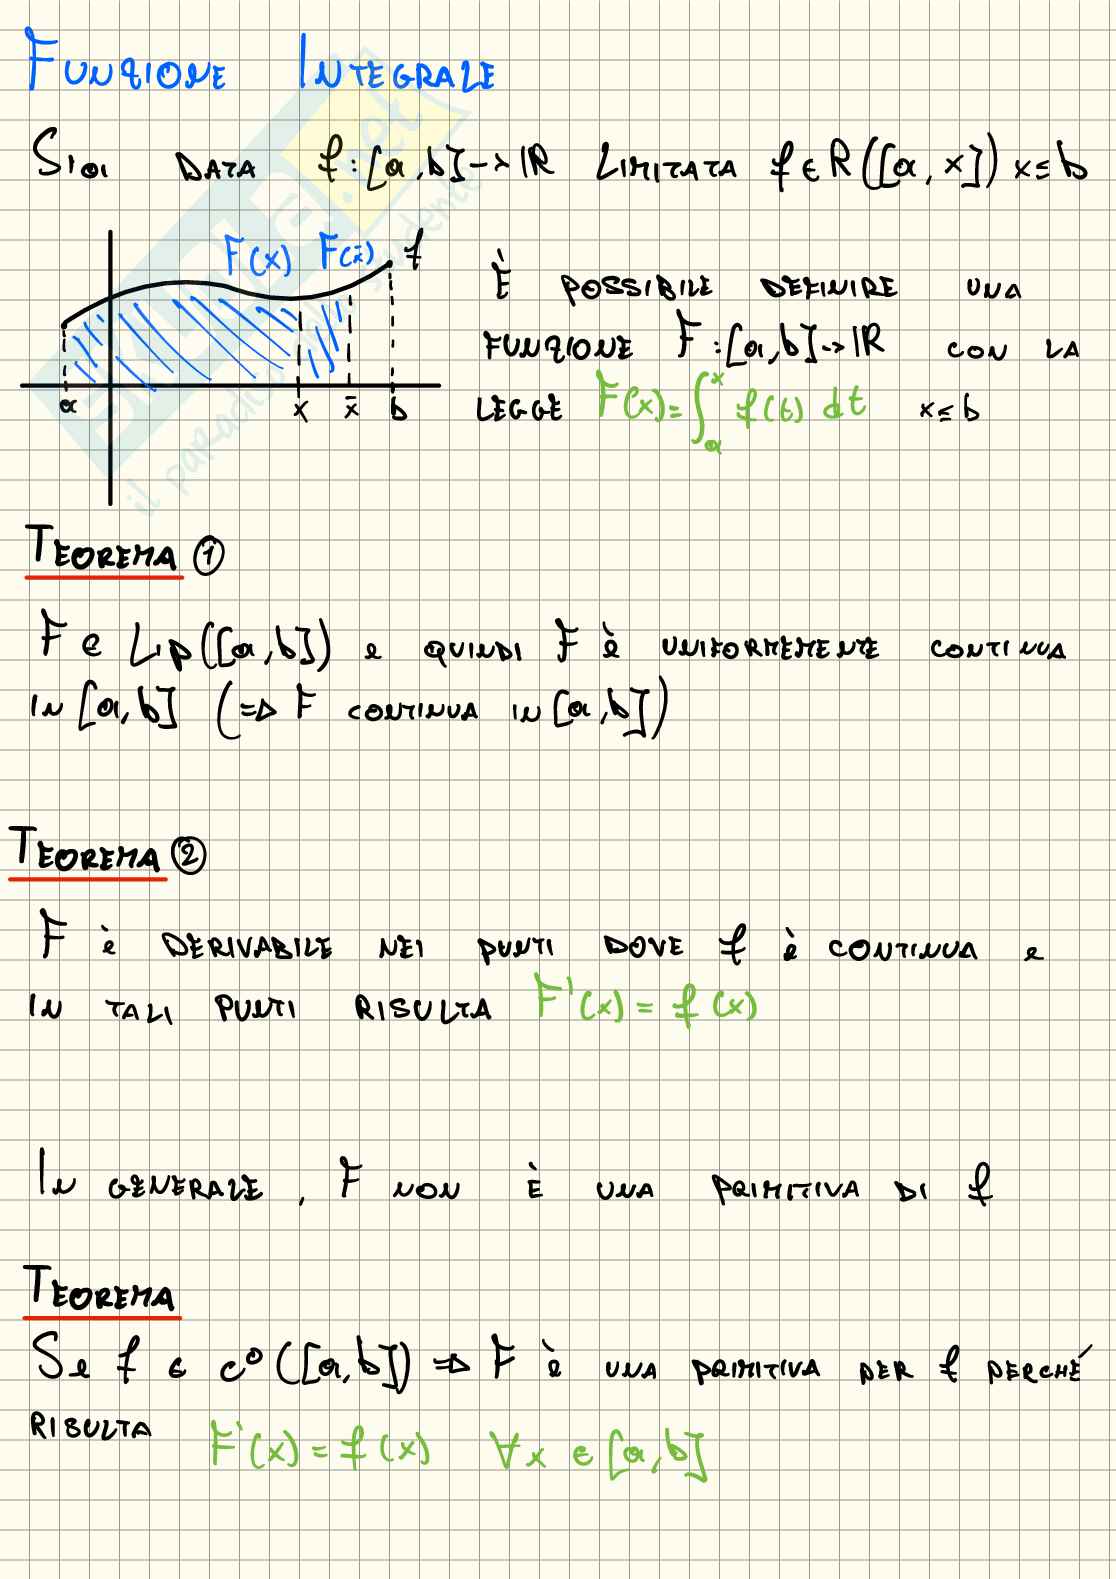 FUNZIONE INTEGRALE
SIA DATA f:[a,b]→ℝ LIMITATA f∈R([a,x]) x≤b
F(x) F(x̄) f
a x x̄ b
È POSSIBILE DEFINIRE UNA
FUNZIONE F:[a,b]→ℝ CON LA
LEGGE F(x)=∫ₐˣ f(t) dt x≤b
TEOREMA ①
F ∈ Lip([a,b]) e QUINDI F è UNIFORMEMENTE CONTINUA
IN [a,b] (⇒ F CONTINUA IN [a,b])
TEOREMA ②
F è DERIVABILE NEI PUNTI DOVE f è CONTINUA e
IN TALI PUNTI RISULTA F'(x)=f(x)
IN GENERALE, F NON È UNA PRIMITIVA DI f
TEOREMA
Se f ∈ C⁰([a,b]) ⇒ F è UNA PRIMITIVA PER f PERCHÉ
RISULTA F'(x)=f(x) ∀x ∈[a,b]